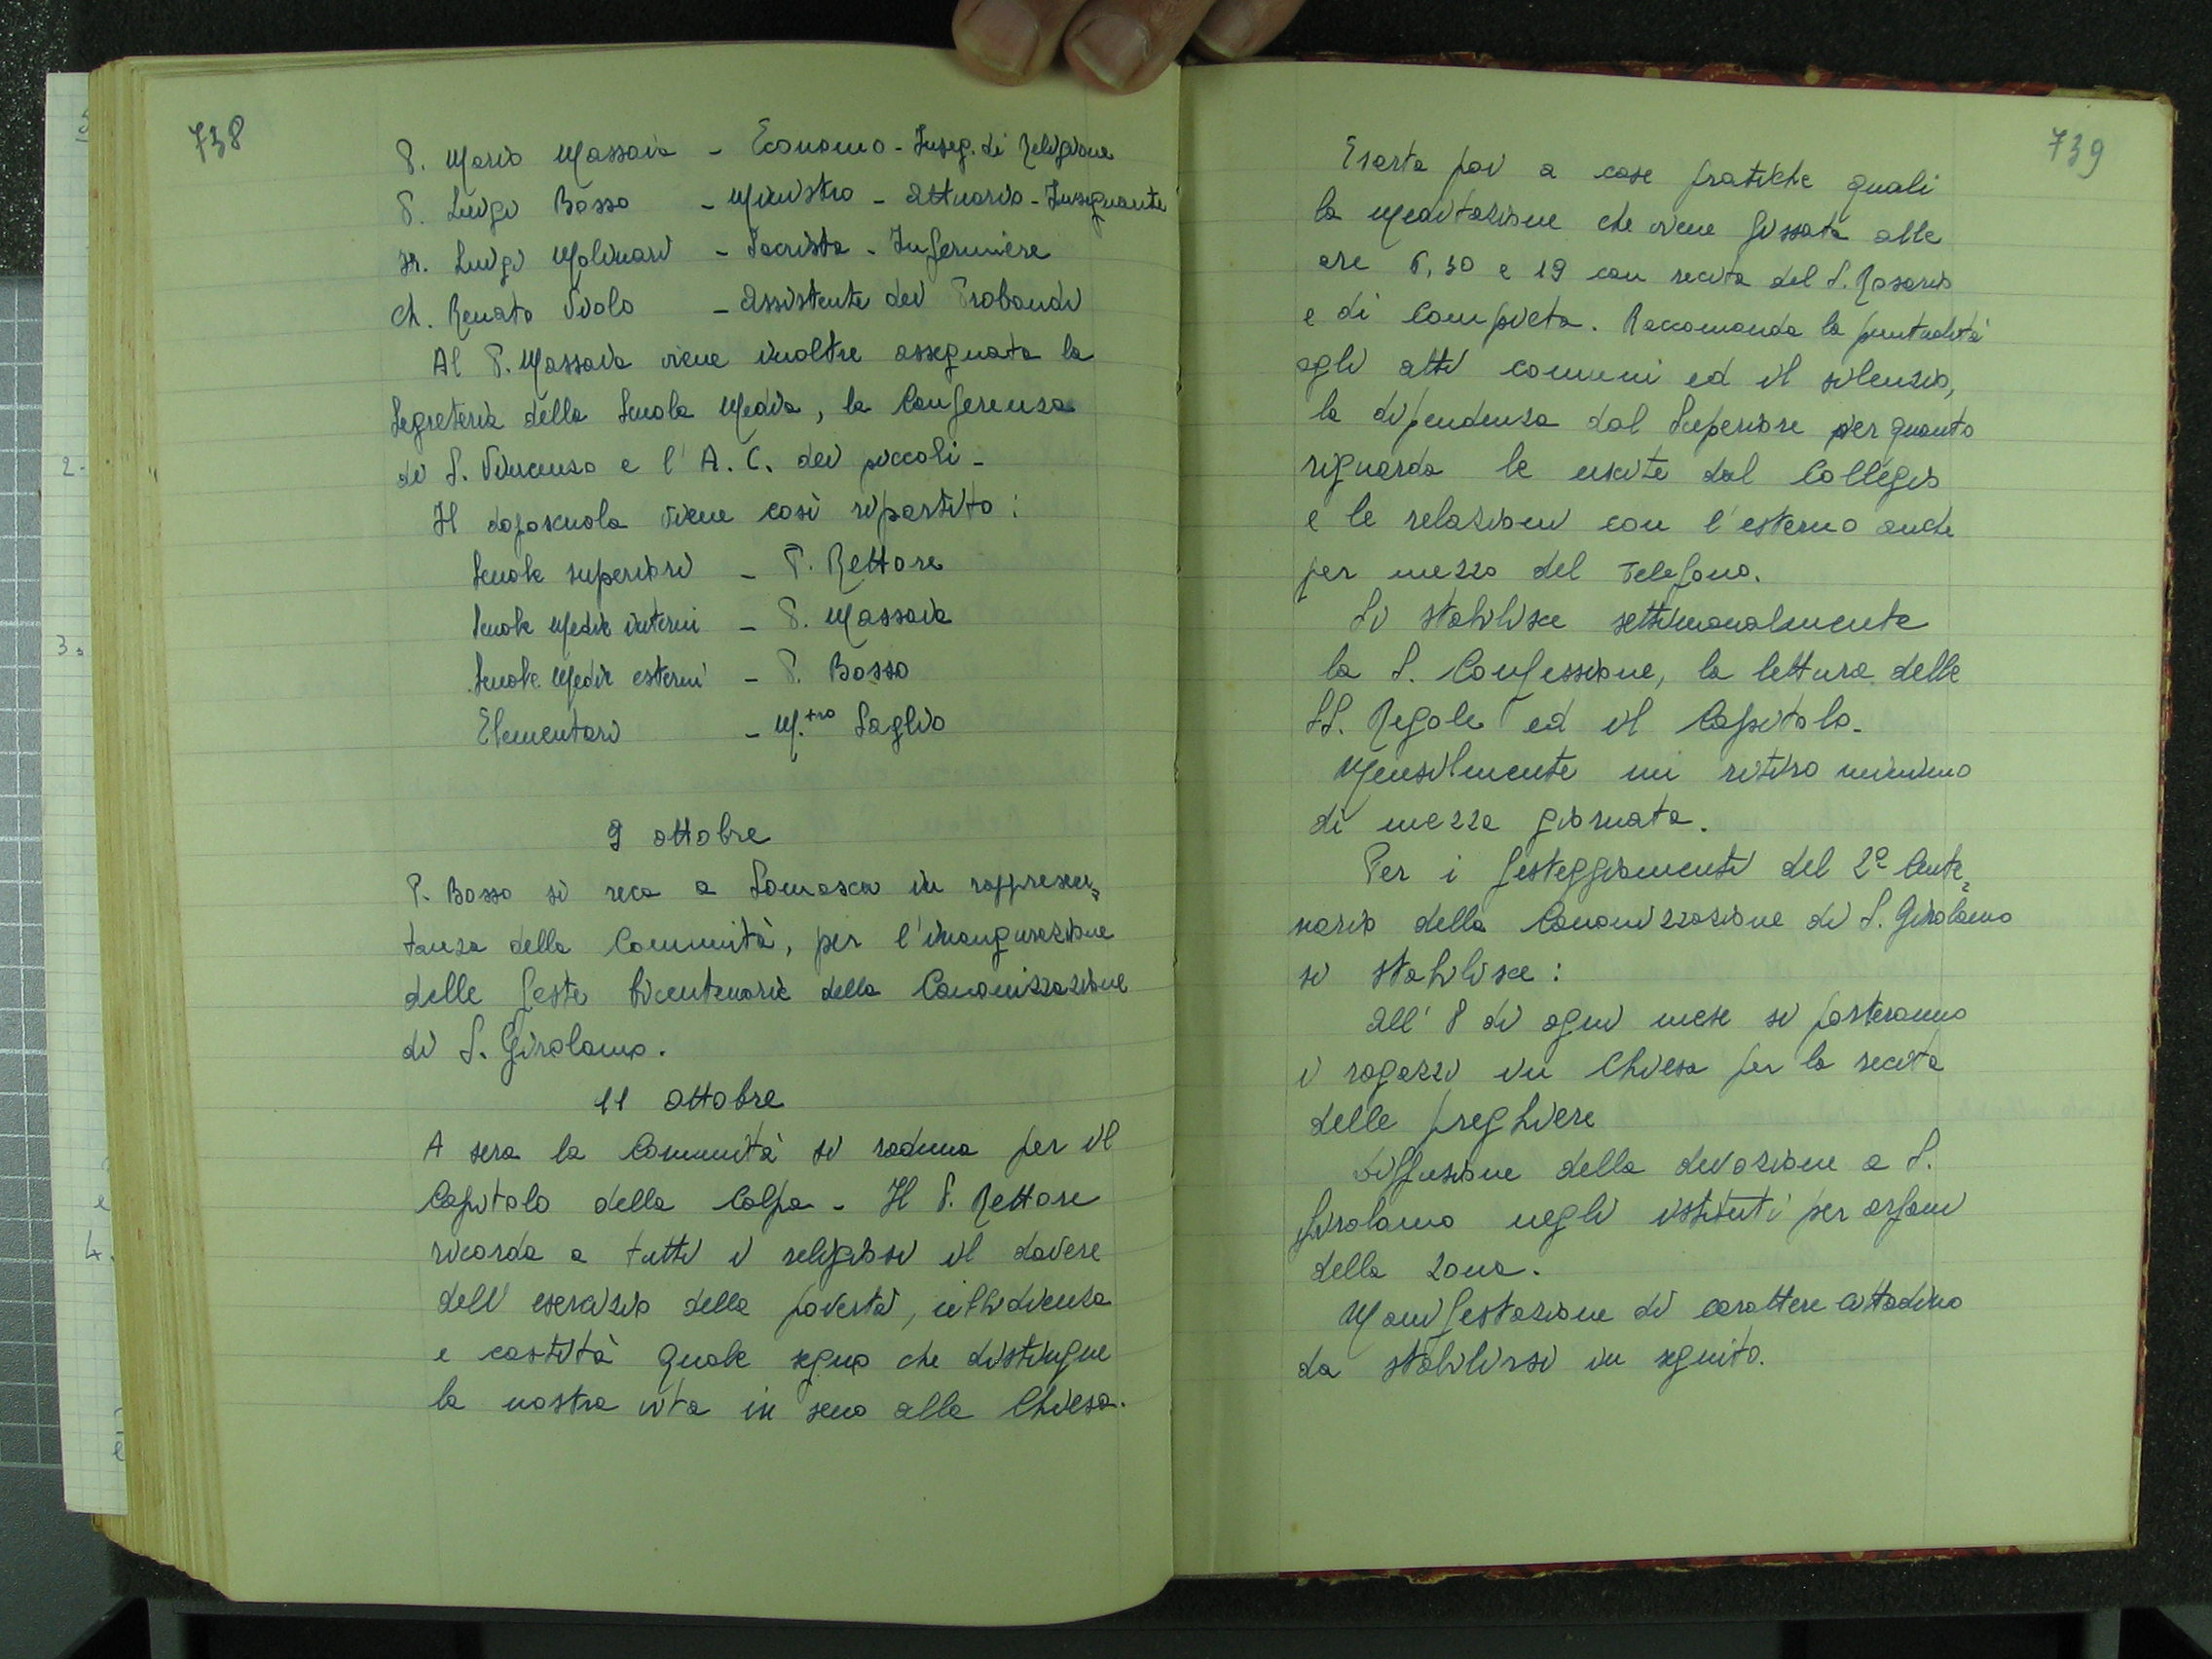 738
P. Mario Massaia - Economo - Inseg. di Religione
P. Luigi Bosso - Ministro - Attuario - Insegnante
Fr. Luigi Molinari - Sacrista - Infermiere
Ch. Renato Violo - Assistente dei Probandi
Al P. Massaia viene inoltre assegnata la
Segreteria della Scuola Media, la Conferenza
di S. Vincenzo e l'A. C. dei piccoli -
Il doposcuola viene così ripartito:
Scuole superiori - P. Rettore
Scuole Medie interni - P. Massaia
Scuole Medie esterni - P. Bosso
Elementari - M.tro Saglio
9 ottobre
P. Bosso si reca a Somasca in rappresen=
tanza della Comunità, per l'inaugurazione
delle feste bicentenarie della Canonizzazione
di S. Girolamo.
11 ottobre
A sera la Comunità si raduna per il
Capitolo della Colpa - Il P. Rettore
ricorda a tutti i religiosi il dovere
dell'esercizio della povertà, ubbidienza
e castità quale segno che distingue
la nostra vita in seno alla Chiesa.
739
Esorta poi a cose pratiche quali
la Meditazione che viene fissata alle
ore 6,30 e 19 con recita del S. Rosario
e di Compieta. Raccomanda la puntualità
agli atti comuni ed il silenzio,
la dipendenza dal Superiore per quanto
riguarda le uscite dal Collegio
e le relazioni con l'esterno anche
per mezzo del Telefono.
Si stabilisce settimanalmente
la S. Confessione, la lettura delle
SS. Regole ed il Capitolo.
Mensilmente un ritiro minimo
di mezza giornata.
Per i festeggiamenti del 2º Cente=
nario della Canonizzazione di S. Girolamo
si stabilisce:
All'8 di ogni mese si porteranno
i ragazzi in Chiesa per la recita
delle preghiere
Diffusione della devozione a S.
Girolamo negli istituti per orfani
della zona.
Manifestazione di carattere cittadino
da stabilirsi in seguito.
2-
3.
4.